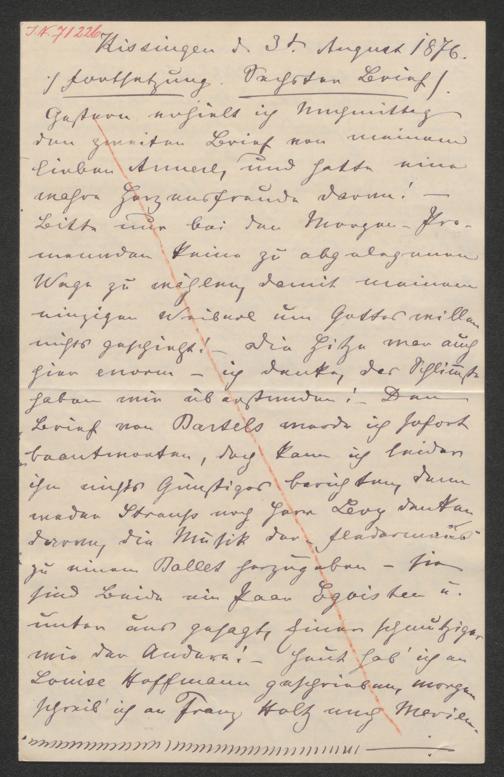 I.N. 71226
Kissingen d. 3t. August 1876.
:/ Fortsetzung. Sechster Brief /:
Gestern erhielt ich Nachmittag
den zweiten Brief von meinem
lieben Annerl, und hatte eine
wahre Herzensfreude daran! –
Bitte nur bei den Morgen-Pro-
menaden keine zu abgelegenen
Wege zu wählen, damit meinem
einzigen Weiberl um Gottes willen
nichts geschieht! – Die Hitze war auch
hier enorm – ich denke, das Schlimmste
haben wir überstanden! – Den
Brief von Bartels werde ich sofort
beantworten, doch kann ich leider
ihm nichts Günstiges berichten, denn
weder Strauss noch Herr Levy denken
daran, die Musik der „Fledermaus“
zu einem Ballet herzugeben – sie
sind Beide ein Paar Egoisten u.
unter uns gesagt, Einer schmutziger
wie der Andere! – Heut hab' ich an
Louise Hoffmann geschrieben, morgen
schreib' ich an Franz Holtz und